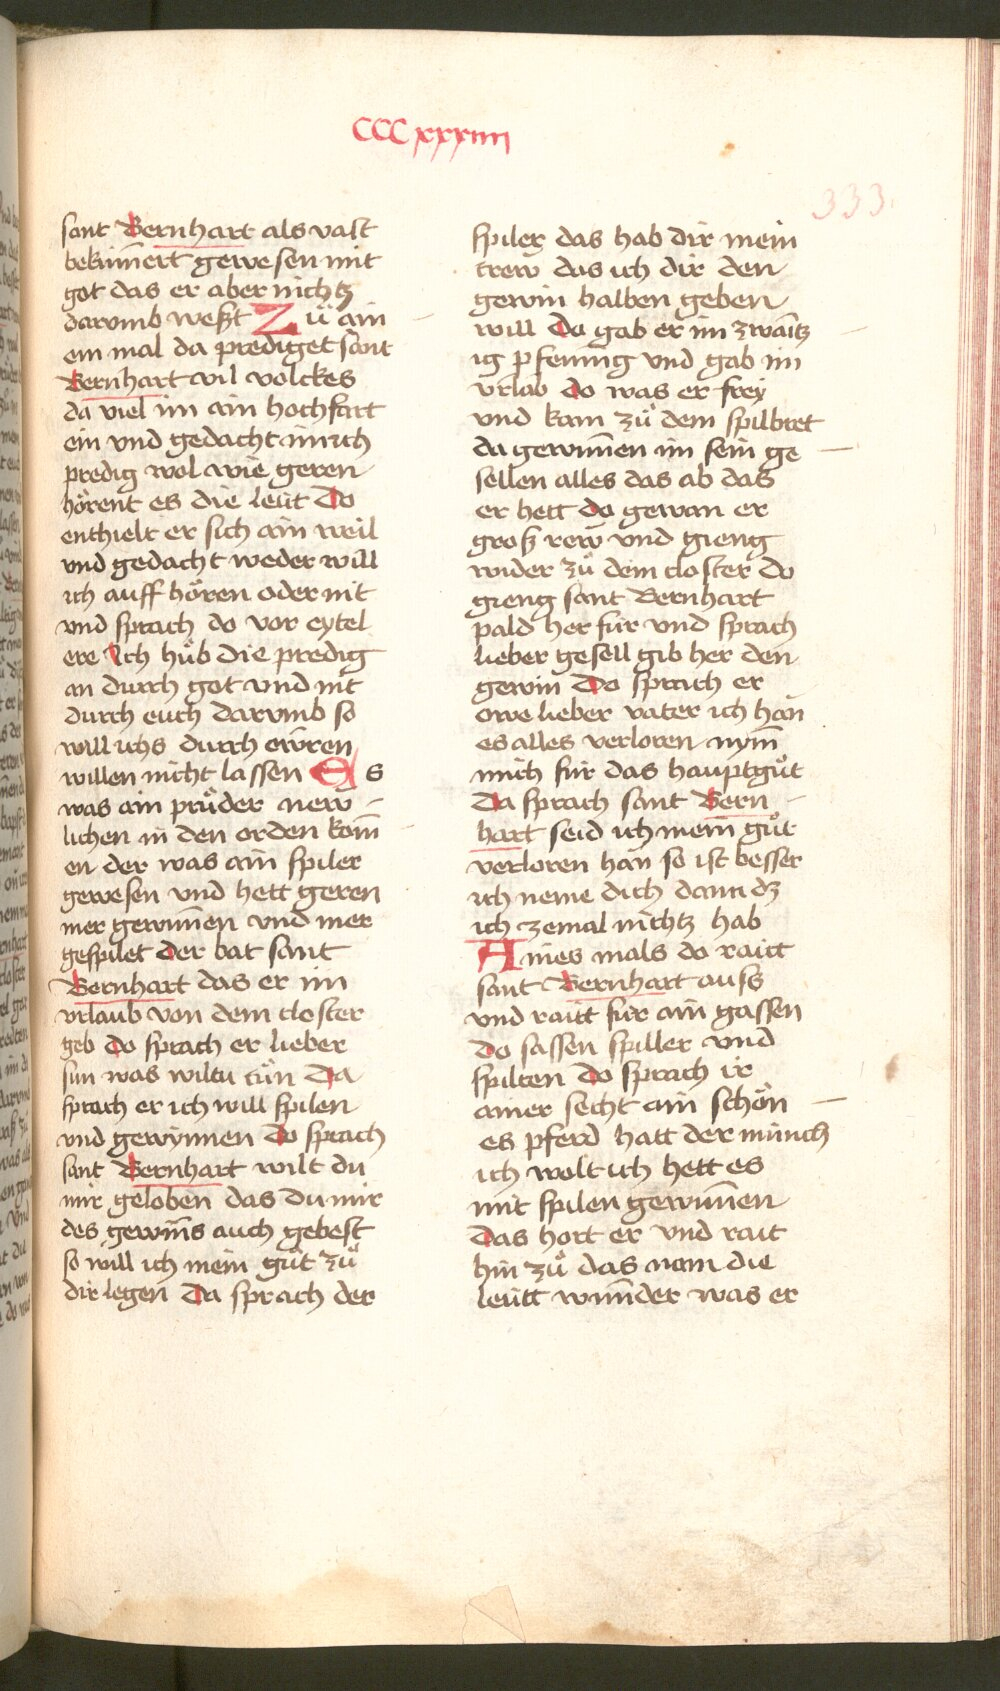 CCCxxxiiii
333
sant Bernhart als vast
bekūm̄ert gewesen mit
got das er aber nichtz
darvmb weßt Zů ain
em mal da prediget sant
Bernhart vil volckes
da viel im ain hochfart
ein vnd gedacht mich
predig wol wie geren
hörent es die leüt Do
enthielt er sich ain weil
vnd gedacht weder will
ich auff hören oder nit
vnd sprach do vor eytel
ere Ich hůb die predig
an durch got vnd nit
durch euch darvmb so
will ichs durch ewren
willen nicht lassen Es
was ain průder new
lichen in den orden kom̄
en der was ain spiler
gewesen vnd hett geren
mer gewun̄en vnd mer
gespilet der bat sant
Bernhart das er im
vrlaub von dem closter
geb do sprach er lieber
sun was wiltu tůn Da
sprach er ich will spilen
vnd gewynnen Do sprach
sant Bernhart wilt du
mir geloben das du mir
des gewin̄s auch gebest
so will ich mein gůt zů
dir legen Da sprach der
spiler das hab dir mein
trew das ich dir den
gewin halben geben
will Do gab er im zwaītz
ig pfenning vnd gab im
vrlob do was er frey
vnd kam zů dem spilbret
da gewun̄en im sein ge
sellen alles das ab das
er hett do gewan er
groß rew vnd gieng
wider zů dem closter do
gieng sant Bernhart
pald her für vnd sprach
lieber gesell gib her den
gewin Do sprach er
owe lieber vater ich han
es alles verloren nym̄
mich für das hauptgůt
Da sprach sant Bern
hart seid ich mein gůt
verloren han so ist besser
ich neme dich dann dz
ich zemal nichtz hab
Aines mals do raitt
sant Bernhart auss
vnd raitt für ain gassen
do sassen spiller vnd
spilten do sprach ir
ainer secht ain schön
es pferd hatt der münch
ich wolt ich hett es
mit spilen gewun̄en
Das hort er vnd rait
hin zů das nam die
leütt wun̄der was er